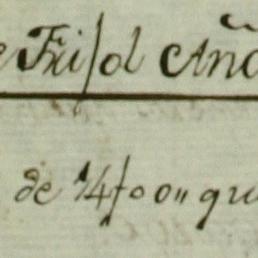 e Frisol Año
de 14foo,, qu